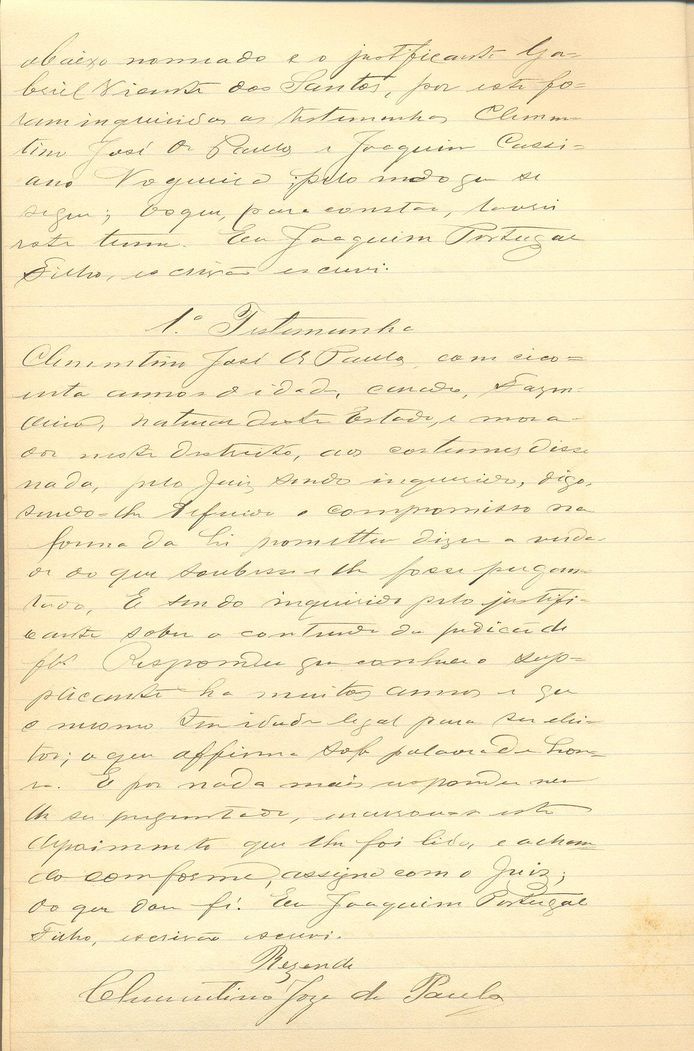 abaixo nomeado e o justificante Ga-
briel Vicente dos Santos, por este fo-
ram inqueridas as testemunhas Clemen-
tino José de Paula e Joaquim Cassi-
ano Nogueira, pelo modo que se
segue; do que, para constar, lavrei
este termo. Eu Joaquim Portugal
Filho, escrivão escrevi.
1.ª Testemunha
Clementino José de Paula, com cico-
enta annos de idade, casado, Fazen-
deiro, natural deste Estado, e mora-
dor neste districto, aos costumes disse
nada, pelo Juiz, sendo inquerido, digo,
sendo-lhe deferido o compromisso na
forma da lei prometteu dizer a verda-
de do que soubesse e lhe fosse pergun-
tado, E sendo inquerido pelo justifi-
cante sobre o contendo da petição de
fls Respondeu que conhece o sup-
plicante ha muitos annos e que
o mesmo tem idade legal para ser elei-
tor; o que affirma sob palavra de hon-
ra. E por nada mais responder nem
lhe ser preguntado, encerrou-se este
depoimento que lhe foi lido, e achan-
do conforme, assigna com o Juiz;
do que dou fé. Eu Joaquim Portugal
Filho, escrivão escrevi.
Rezende
Clementino Joze de Paula